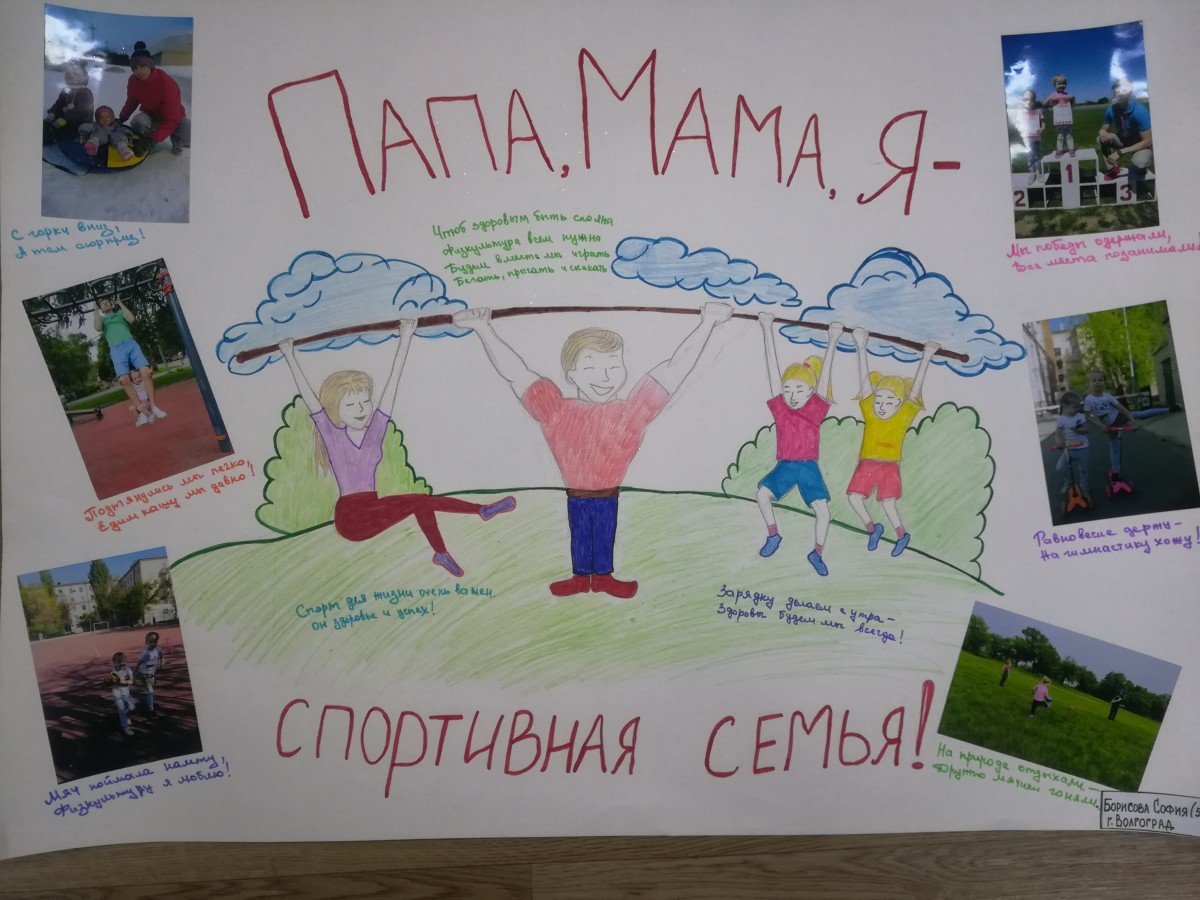 Папа, Мама, я-
Чтоб здоровым быть сполна
Физкультура всем нужна
Будем вместе мы играть
Бегать, прыгать и скакать
С горки вниз,
А там сюрприз!
Мы победы одержали,
Все места позанимали
2
1
3
Подтянулись мы легко,
Едим кашу мы давно!
Равновесие держу-
На гимнастику хожу!
Спорт для жизни очень важен.
Он здоровье и успех!
Зарядку делаем с утра-
Здоровы будем мы всегда!
Мяч поймала налету,
Физкультуру я люблю!
На природе отдыхали-
Дружно мячики гоняли.
спортивная семья!
Борисова София (5
г. Волгоград